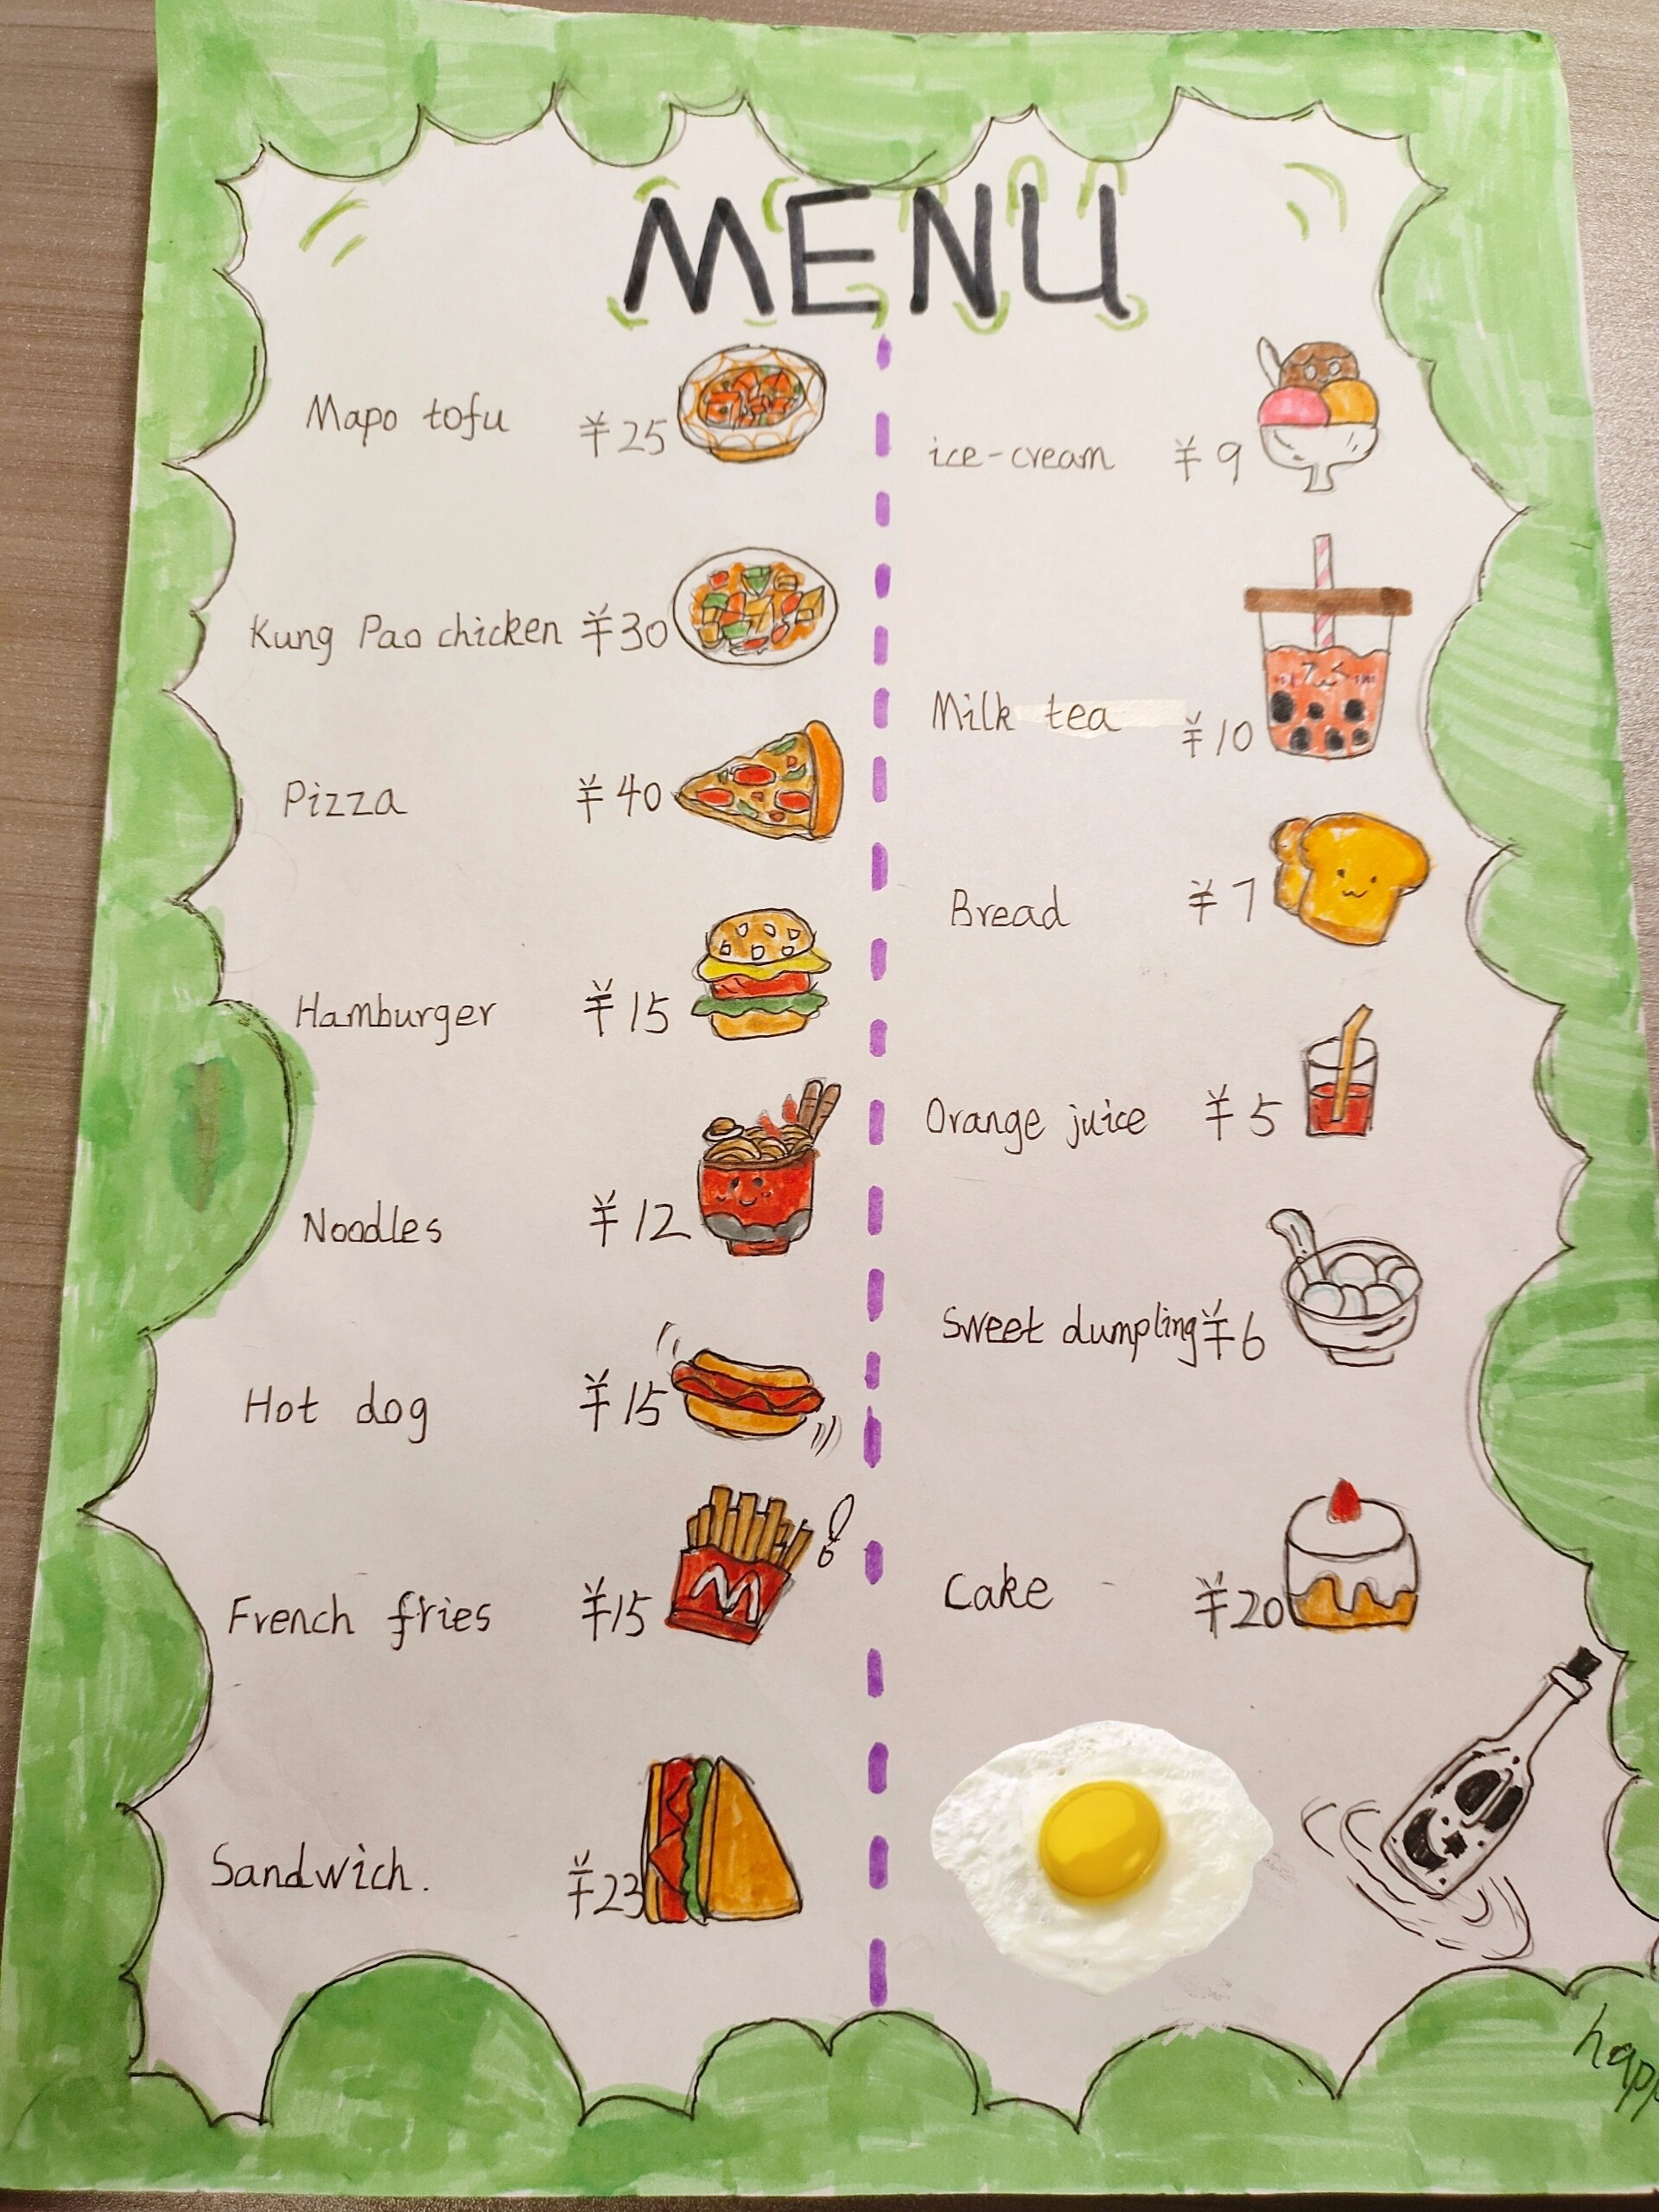 MENU
Mapo tofu ¥25
Kung Pao chicken ¥30
Pizza ¥40
Hamburger ¥15
Noodles ¥12
Hot dog ¥15
French fries ¥15
M
Sandwich. ¥23
ice-cream ¥9
Milk tea ¥10
Bread ¥7
Orange juice ¥5
Sweet dumpling ¥6
Cake ¥20